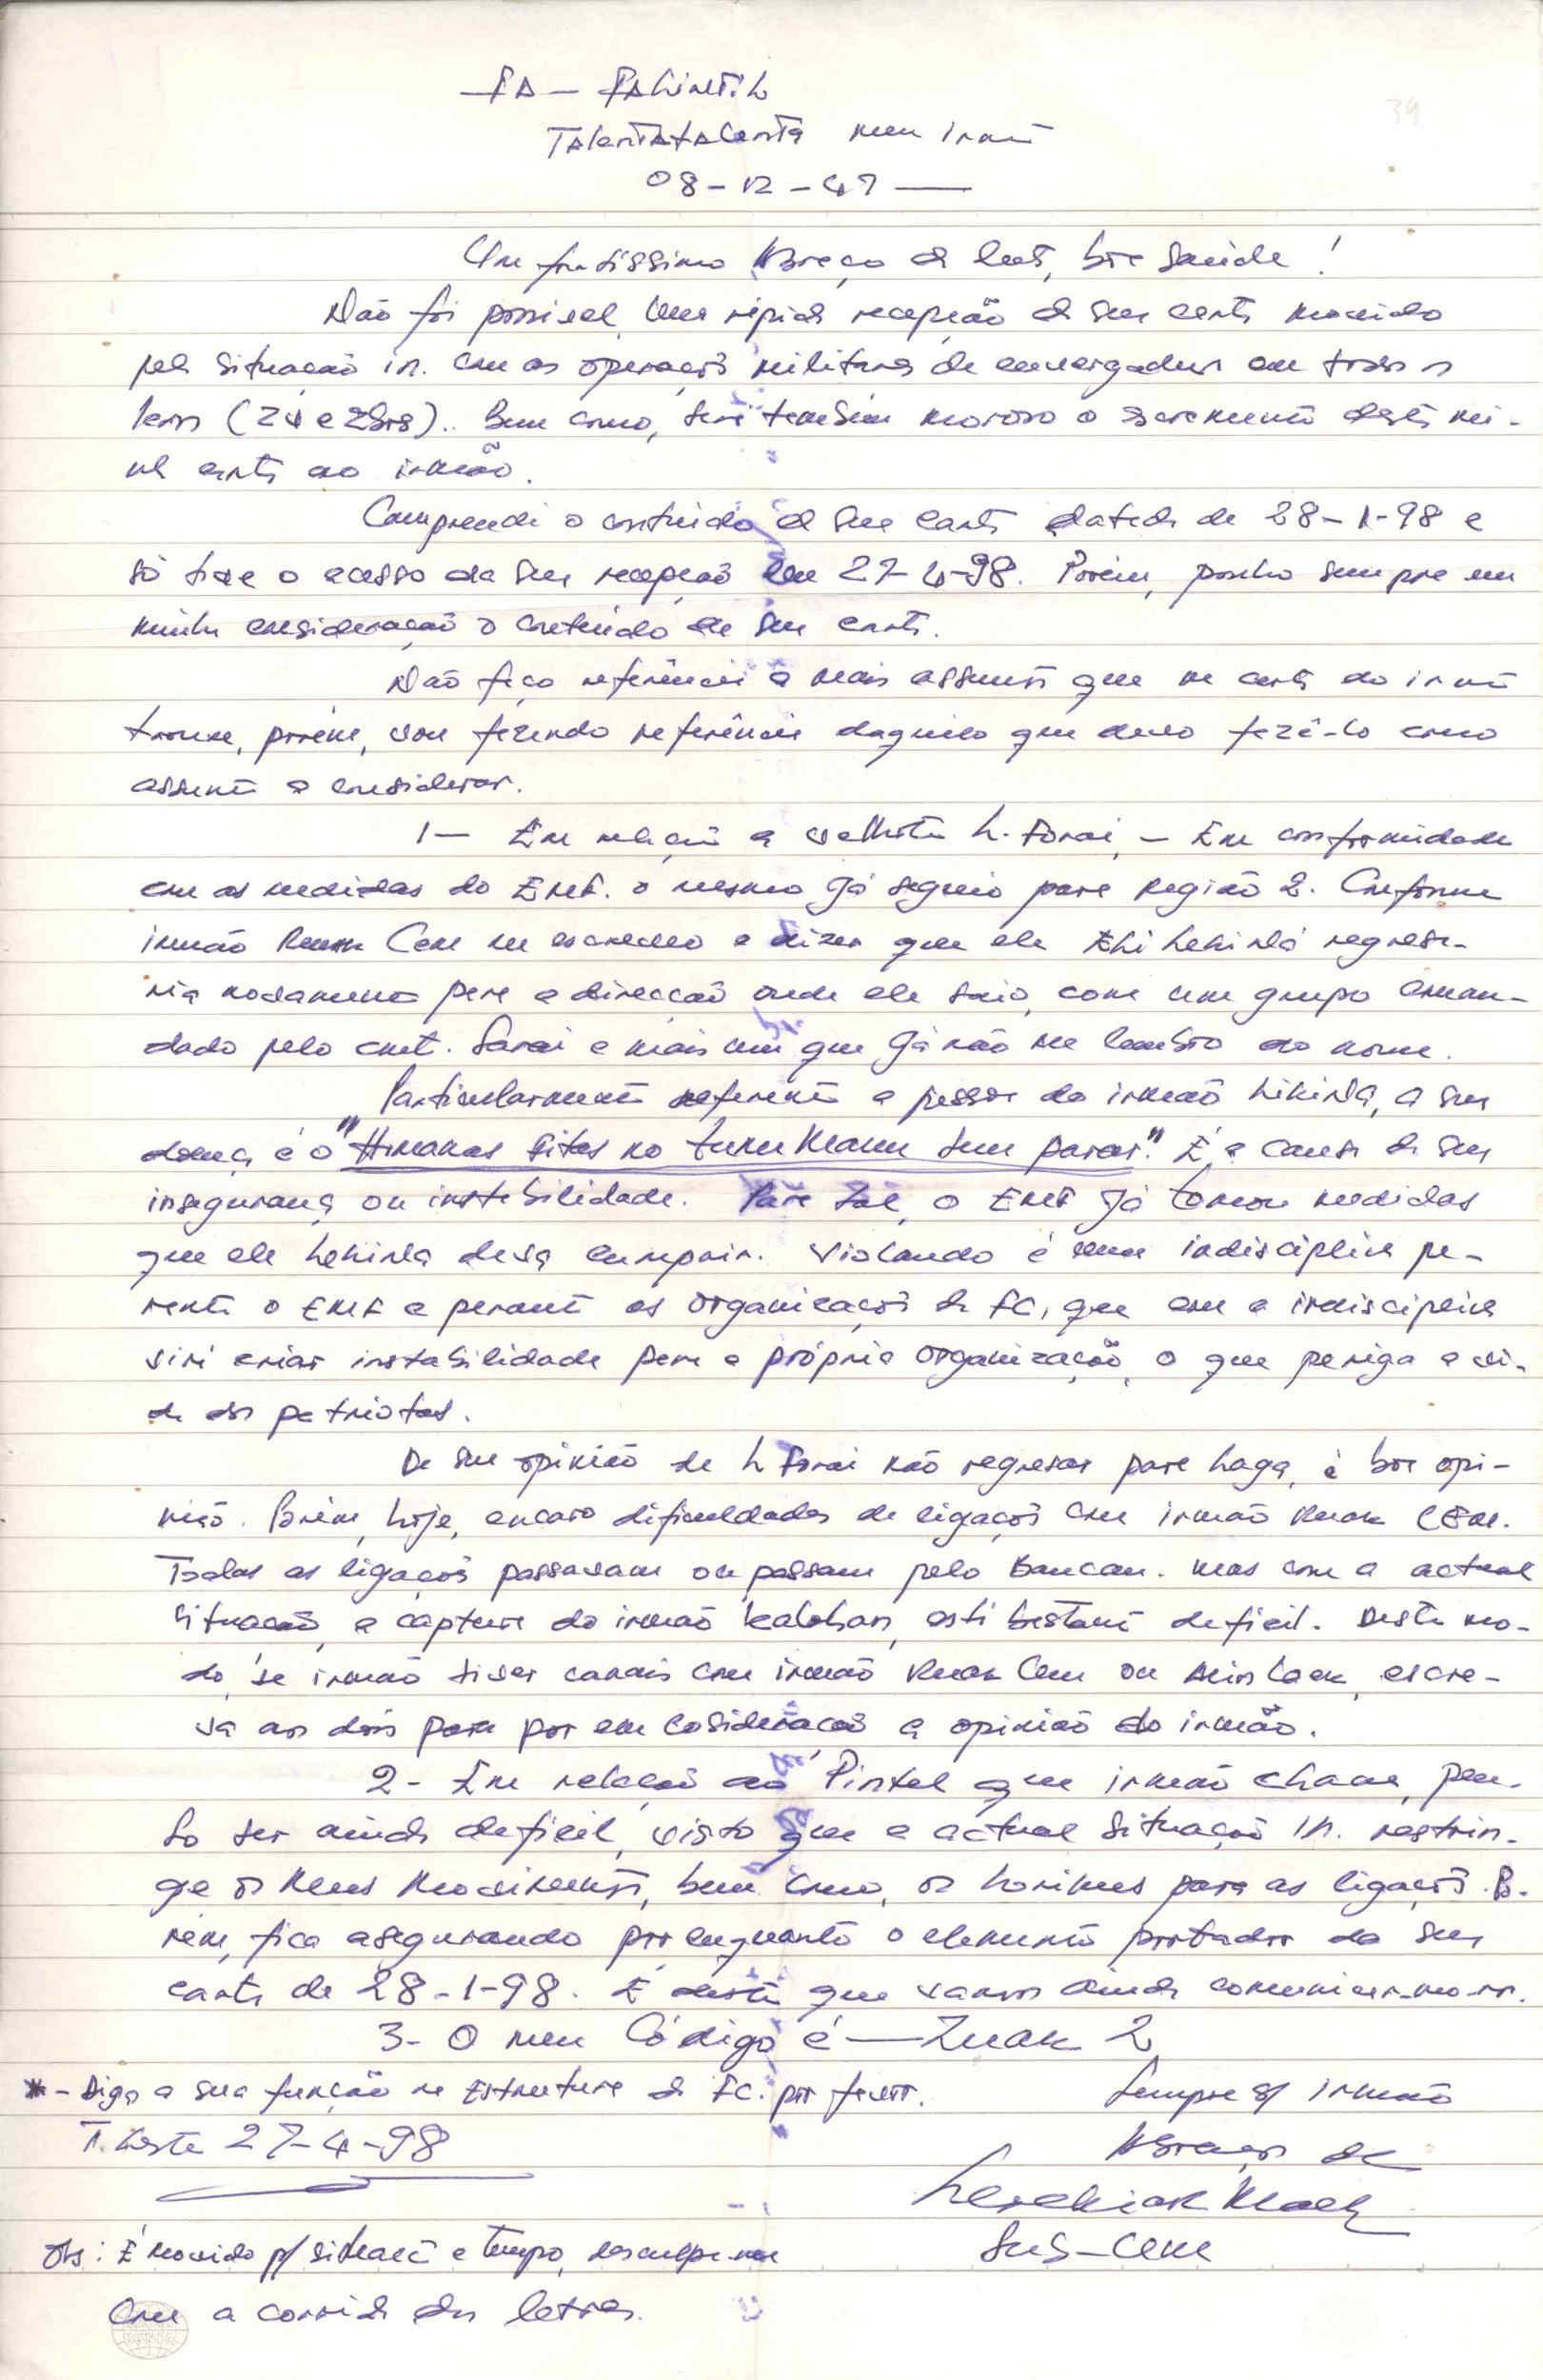 meu irmão
08-12-47
Um fortíssimo Abraço de luta, boa saúde!
Não foi possível uma rápida recepção da sua carta movido
pela situação in. com as operaçõs militares de envergadura em todos os
lexos (24 e 25rs).. Bem como, será também moroso o da mi-
nha carta ao irmão.
Compreendi o contuido da sua carta datada de 28-1-98 e
só tive o acesso da sua recepção em 27-4-98. Porém, ponho sempre em
minha consideração o conteúdo de sua carta.
Não faço referência a mais assuntos que na carta do irmão
trouxe, porém, vou fazendo referência daquilo que devo fazê-lo como
assunto a considerar.
1- Em relação a L. Forai, - Em conformidade
com as medidas do EMF. o mesmo já seguio para Região 2. Conforme
irmão Ruak Cem me escreveo a dizer que ele regresa-
ria novamente para a direcção onde ele saio, com um grupo coman-
dado pelo cmt. Sarai e mais um que já não me lembro do nome.
Particularmente referente a pessoa do irmão a sua
doença é o " sem parar". É a causa da sua
insegurança ou instabilidade. Para tal, o EMF já tomou medidas
que ele deva cumprir. Violando é uma indisciplina pe-
rante o EMF e perante as organizaçõs da FC, que com a indisciplina
virá criar instabilidade para a própria organização, o que periga a vi-
da dos patriotas.
De sua opinião de L Forai não regresar para Laga, é boa opi-
nião. Porém, hoje, encaro dificuldades de ligaçõs com irmão Ruak Cem.
Todas as ligaçõs passavam ou passam pelo Baucau. Mas com a actual
situação, a captura do irmão Kalohan, está bastante deficil. Deste mo-
do, se irmão tiver canais com irmão Ruak Cem ou escre-
va aos dois para por em cosideração a opinião do irmão.
2- Em relação ao Pintal que irmão chama, pen-
so ser ainda deficil, visto que a actual situação in. restrin-
ge os meus movimentos, bem como, os para as ligaçõs. Po-
rém, fica asegurando por enquanto o elemento portador da sua
carta de 28-1-98. É deste que vamos ainda comunicar-mo-nos.
3- O meu Código é — Zuak 2
*- Diga a sua função na Estrutura da FC. por favor.
Sempre s/ irmão
T. Leste 27-4-98
Abraços de
Sub-Cem
Obs: É movido p/ situaçõ e tempo, desculpe-me
com a corrida das letras.